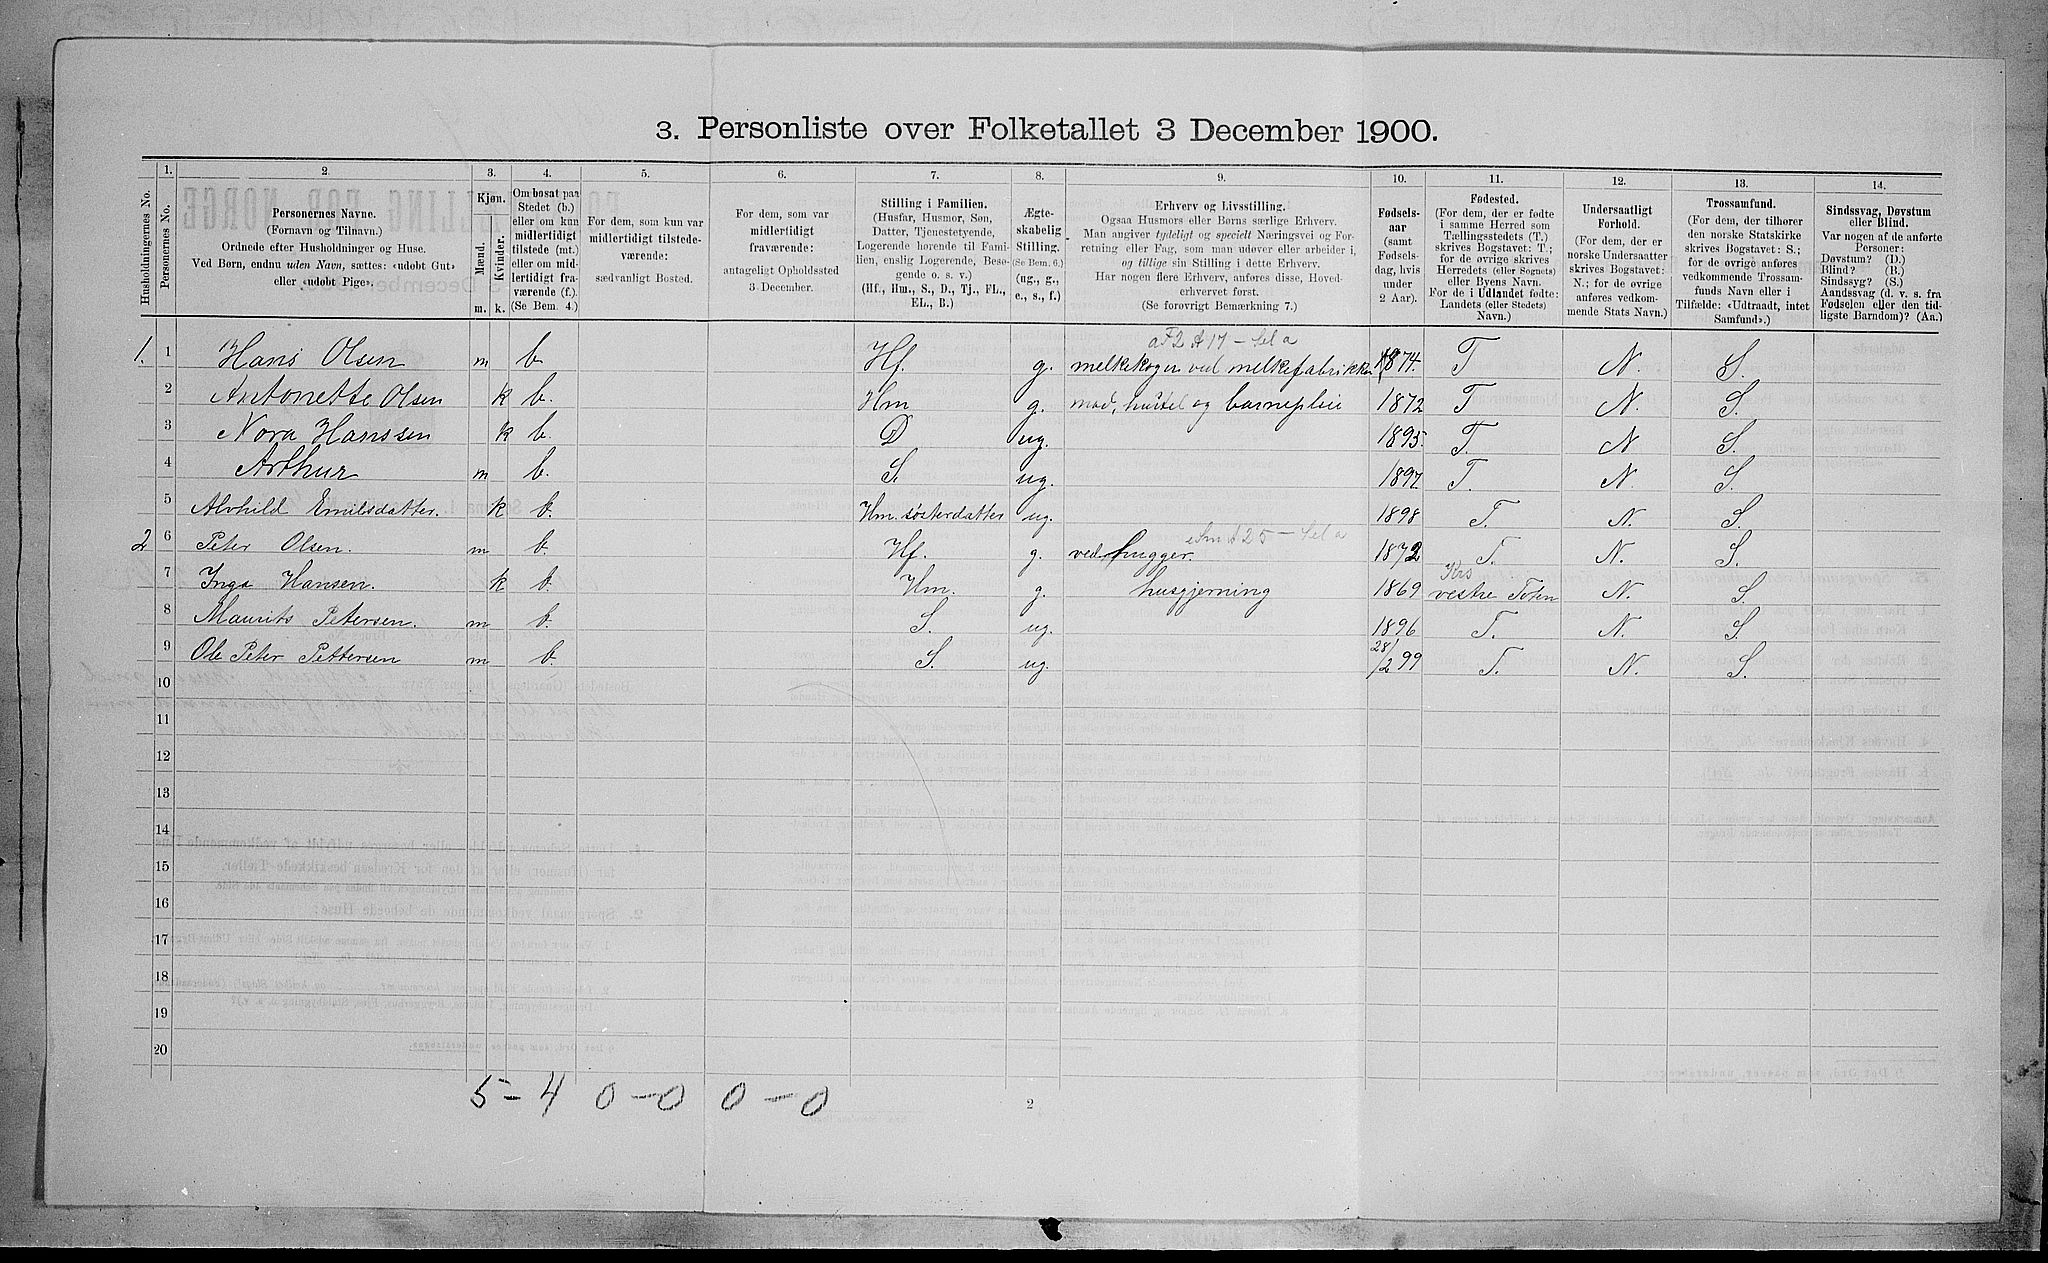 3. Personliste over Folketallet 3 December 1900.
Husholdningernes No.
1.
Personernes No.
2.
Personernes Navne.
(Fornavn og Tilnavn.)
Ordnede efter Husholdninger og Huse.
Ved Børn, endnu uden Navn, sættes: «udøbt Gut»
eller «udøbt Pige».
3.
Kjøn.
Mænd.
Kvinder.
m. k.
4.
Om bosat paa
Stedet (b.)
eller om kun
midlertidigt
tilstede (mt.)
eller om mid-
lertidigt fra-
værende (f.)
(Se Bem. 4.)
5.
For dem, som kun var
midlertidigt tilstede-
værende:
sædvanligt Bosted.
6.
For dem, som var
midlertidigt
fraværende:
antageligt Opholdssted
3 December.
7.
Stilling i Familien.
(Husfar, Husmor, Søn,
Datter, Tjenestetyende,
Logerende hørende til Fami-
lien, enslig Logerende, Besø-
gende o. s. v.)
(Hf., Hm., S., D., Tj., FL.,
EL., B.)
8.
Ægte-
skabelig
Stilling.
(Se Bem. 6.)
(ug., g.,
e., s., f.)
9.
Erhverv og Livsstilling.
Ogsaa Husmors eller Børns særlige Erhverv.
Man angiver tydeligt og specielt Næringsvei og For-
retning eller Fag, som man udøver eller arbeider i,
og tillige sin Stilling i dette Erhverv.
Har nogen flere Erhverv, anføres disse, Hoved-
erhvervet først.
(Se forøvrigt Bemærkning 7.)
10.
Fødsels-
aar
(samt
Fødsels-
dag, hvis
under
2 Aar).
11.
Fødested.
(For dem, der er fødte
i samme Herred som
Tællingsstedets (T.)
skrives Bogstavet: T.;
for de øvrige skrives
Herredets (eller Sognets)
eller Byens Navn.
For de i Udlandet fødte:
Landets (eller Stedets)
Navn.)
12.
Undersaatligt
Forhold.
(For dem, der er
norske Undersaatter
skrives Bogstavet:
N.; for de øvrige
anføres vedkom-
mende Stats Navn.)
13.
Trossamfund.
(For dem, der tilhører
den norske Statskirke
skrives Bogstavet: S.;
for de øvrige anføres
vedkommende Trossam-
funds Navn eller i
Tilfælde: «Udtraadt, intet
Samfund».)
14.
Sindssvag, Døvstum
eller Blind.
Var nogen af de anførte
Personer:
Døvstum? (D.)
Blind? (B.)
Sindssyg? (S.)
Aandssvag (d. v. s. fra
Fødselen eller den tid-
ligste Barndom)? (Aa.)
1. 1 Hans Olsen m b. Hf. g. melkekoger ved melkefabrikken 1874. T N. S.
2 Antonette Olsen k b. Hm g. mad, hustel og barnepleie 1872 T N. S.
3 Nora Hanssen k b. D ug. 1895. T. N S.
4 Arthur m b. S. ug. 1897. T. N. S.
5 Alvhild Emilsdatter. k b. Hm. søsterdatter ug. 1898 T. N. S.
2 6 Peter Olsen. m b. Hf. g. vedhugger. 1872 T. N. S.
7 Inga Hansen. k b. Hm. g. husgjerning 1869 Krs vestre Toten N. S.
8 Maurits Petersen. m b. S. ug. 1896 T. N. S.
9 Ole Peter Pettersen m b. S. ug. 28/2 99 T. N. S.
10
11
12
13
14
15
16
17
18
19
20
5 - 4 0 - 0 0 - 0
2